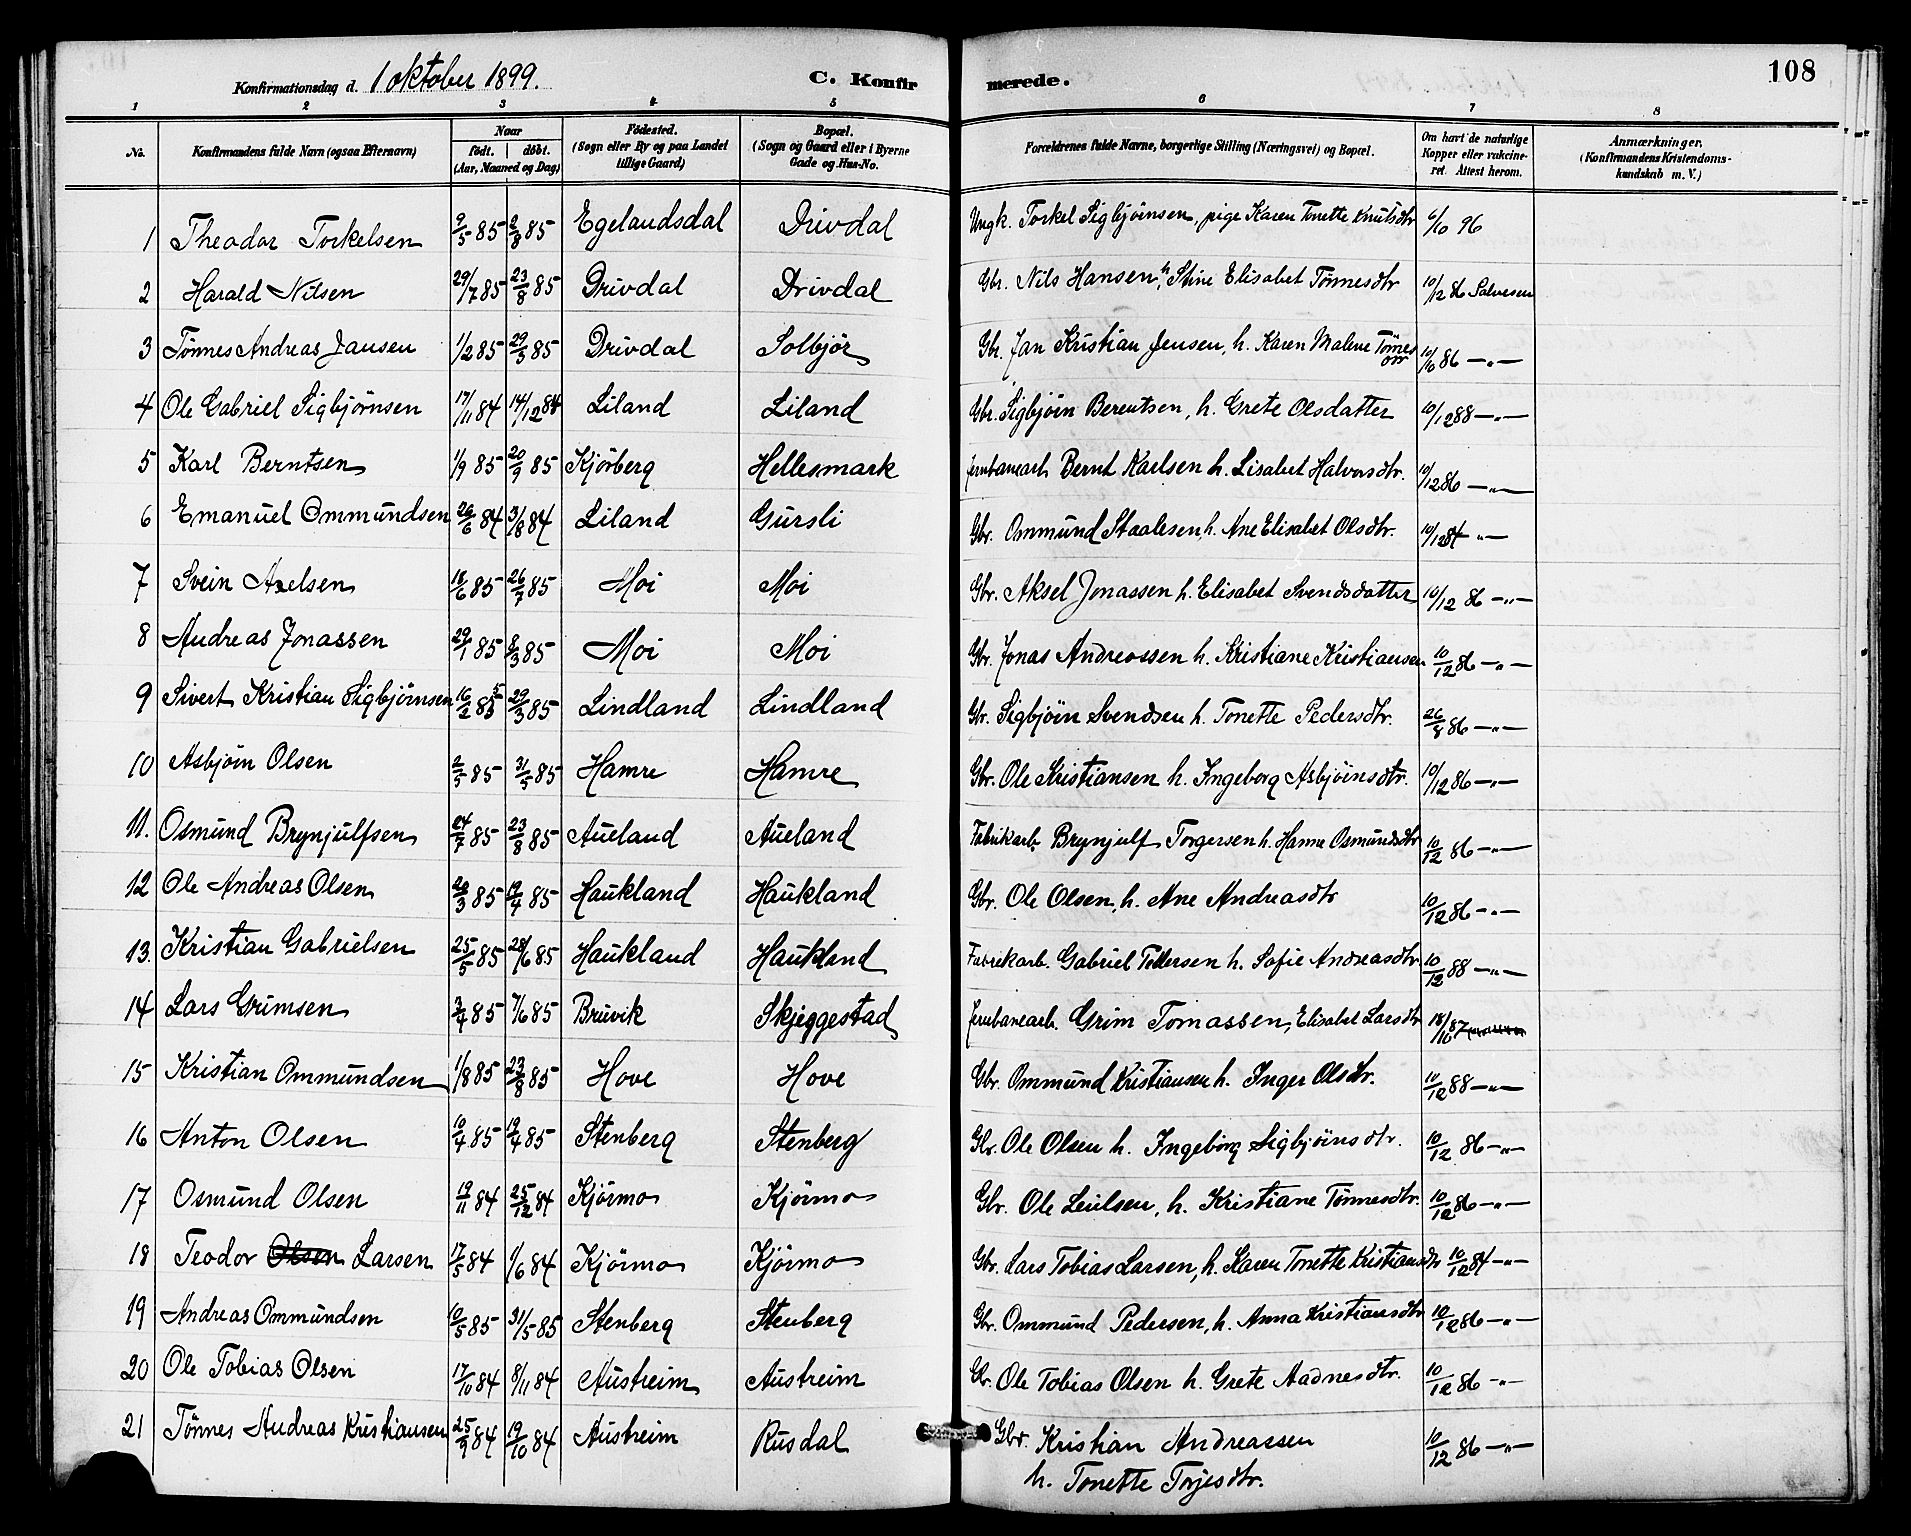 108
Konfirmationsdag d. 1 oktober 1899. C. Konfirmerede.
1 2 3 4 5 6 7 8
No. Konfirmandens fulde Navn (ogsaa Efternavn) Naar født. døbt. (Aar, Maaned og Dag) Fødested. (Sogn eller By og paa Landet tillige Gaard) Bopæl. (Sogn og Gaard eller i Byerne Gade og Hus-No. Forældrenes fulde Navne, borgerlige Stilling (Næringsvei) og Bopæl. Om havt de naturlige Kopper eller vakcineret. Attest herom. Anmærkninger. (Konfirmandens Kristendomskundskab m. V.)
1 Theodor Torkelsen 9/5 85 2/8 85 Egelandsdal Drivdal Ungk. Torkel Sigbjørnsen, pige Karen Tonette Knutsdtr 6/10 96
2 Harald Nilsen 29/7 85 23/8 85 Drivdal Drivdal Gbr. Nils Hansen, h. Stine Elisabet Tønnesdtr 10/12 86 Salvesen
3 Tønnes Andreas Jansen 1/2 85 29/3 85 Drivdal Solbjør Gbr. Jan Kristian Jensen, h. Karen Malene Tønnesdtr 10/10 86 -"-
4 Ole Gabriel Sigbjørnsen 17/11 84 14/12 84 Liland Liland Gbr. Sigbjørn Berentsen, h. Grete Olsdatter 10/12 88 -"-
5 Karl Berntsen 1/9 85 20/9 85 Kjørberg Hellesmark Jernbanearb. Bernt Karlsen h. Lisabet Halvorsdtr. 10/12 86 -"-
6 Emanuel Ommundsen 26/6 84 3/8 84 Liland Gursli Gbr. Ommund Staalesen, h. Ane Elisabet Olsdtr. 10/12 84 -"-
7 Svein Axelsen 18/6 85 26/7 85 Moi Moi Gbr. Aksel Jonassen h. Elisabet Svendsdatter 10/12 86 -"-
8 Andreas Jonassen 29/1 85 8/3 85 Moi Moi Gbr. Jonas Andreassen h. Kristiane Kristiansen 10/12 86 -"-
9 Sivert Kristian Sigbjørnsen 16/2 85 29/3 85 Lindland Lindland Gbr. Sigbjørn Svendsen h. Tonette Pedersdtr. 26/8 86 -"-
10 Asbjørn Olsen 2/5 85 31/5 85 Hamre Hamre Gbr. Ole Kristiansen h. Ingeborg Asbjørnsdtr. 10/12 86 -"-
11. Osmund Brynjulfsen 24/7 85 23/8 85 Aueland Aueland Fabrikarb. Brynjulf Torgersen h. Hanne Osmundsdtr 10/12 86 -"-
12 Ole Andreas Olsen 20/3 85 19/4 85 Haukland Haukland Gbr. Ole Olsen, h. Ane Andreasdtr 10/12 86 -"-
13. Kristian Gabrielsen 25/5 85 28/6 85 Haukland Haukland Fabrikarb. Gabriel Tollersen h. Sofie Andreasdtr 10/12 88 -"-
14 Lars Grimsen 3/4 85 7/6 85 Bruvik Skjeggestad Jernbanearb. Grim Tomassen, Elisabet Larsdtr 18/10 87
15 Kristian Ommundsen 1/8 85 23/8 85 Hove Hove Gbr. Ommund Kristiansen h. Inger Olsdtr. 10/12 88 -"-
16 Anton Olsen 10/4 85 19/4 85 Stenberg Stenberg Gbr. Ole Olsen h. Ingeborg Sigbjørnsdtr. 10/12 86 -"-
17 Osmund Olsen 19/11 84 25/12 84 Kjørmo Kjørmo Gbr. Ole Leulsen, h. Kristiane Tønnesdtr. 10/12 86 -"-
18 Teodor Olsen Larsen 17/5 84 1/6 84 Kjørmo Kjørmo Gbr. Lars Tobias Larsen, h. Karen Tonette Kristiansdtr 10/12 84 -"-
19 Andreas Ommundsen 10/5 85 31/5 85 Stenberg Stenberg Gbr. Ommund Pedersen, h. Anna Kristiansdtr 10/12 86 -"-
20 Ole Tobias Olsen 17/10 84 8/11 84 Austreim Austreim Gbr. Ole Tobias Olsen h. Grete Aadnesdtr. 10/12 86 -"-
21 Tønnes Andreas Kristiansen 25/9 84 19/10 84 Austreim Rusdal Gbr. Kristian Andreassen 10/12 86 -"-
h. Tonette Torjesdtr.